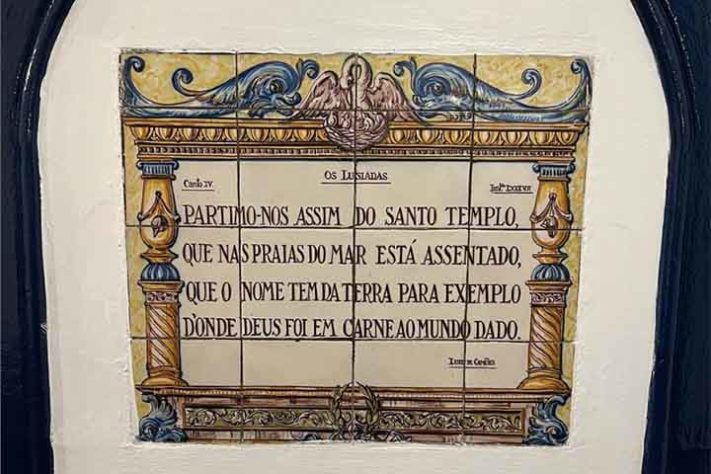 OS LUSIADAS
Canto IV.
PARTIMO-NOS ASSIM DO SANTO TEMPLO,
QUE NAS PRAIAS DO MAR ESTÁ ASSENTADO,
QUE O NOME TEM DA TERRA PARA EXEMPLO
D'ONDE DEUS FOI EM CARNE AO MUNDO DADO.
LUIS DE CAMÕES